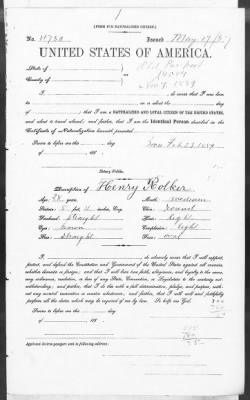 [FORM FOR NATURALIZED CITIZEN.]
No. 11730 Issued May 17/87
UNITED STATES OF AMERICA.
State of
Old Passport
County of
I, do swear that I was born
in on or about the day of
; that I am a NATURALIZED AND LOYAL CITIZEN OF THE UNITED STATES,
and about to travel abroad; and further, that I am the Identical Person described in the
Certificate of Naturalization herewith presented.
Sworn to before me, this day
of 188
Notary Public.
Description of Henry Rolker
Age: years. Mouth: medium
Stature: 5 feet, inches, Eng. Chin: round
Forehead: straight Hair: light
Eyes: brown Complexion: light
Nose: straight Face: oval
I, do solemnly swear that I will support,
protect, and defend the Constitution and Government of the United States against all enemies,
whether domestic or foreign; and that I will bear true faith, allegiance, and loyalty to the same,
any ordinance, resolution, or law of any State, Convention, or Legislature to the contrary not-
withstanding; and further, that I do this with a full determination, pledge, and purpose, with-
out any mental reservation or evasion whatsoever; and further, that I will well and faithfully
perform all the duties which may be required of me by law. So help me God.
Sworn to before me, this day
of 188
Applicant desires passport sent to following address: